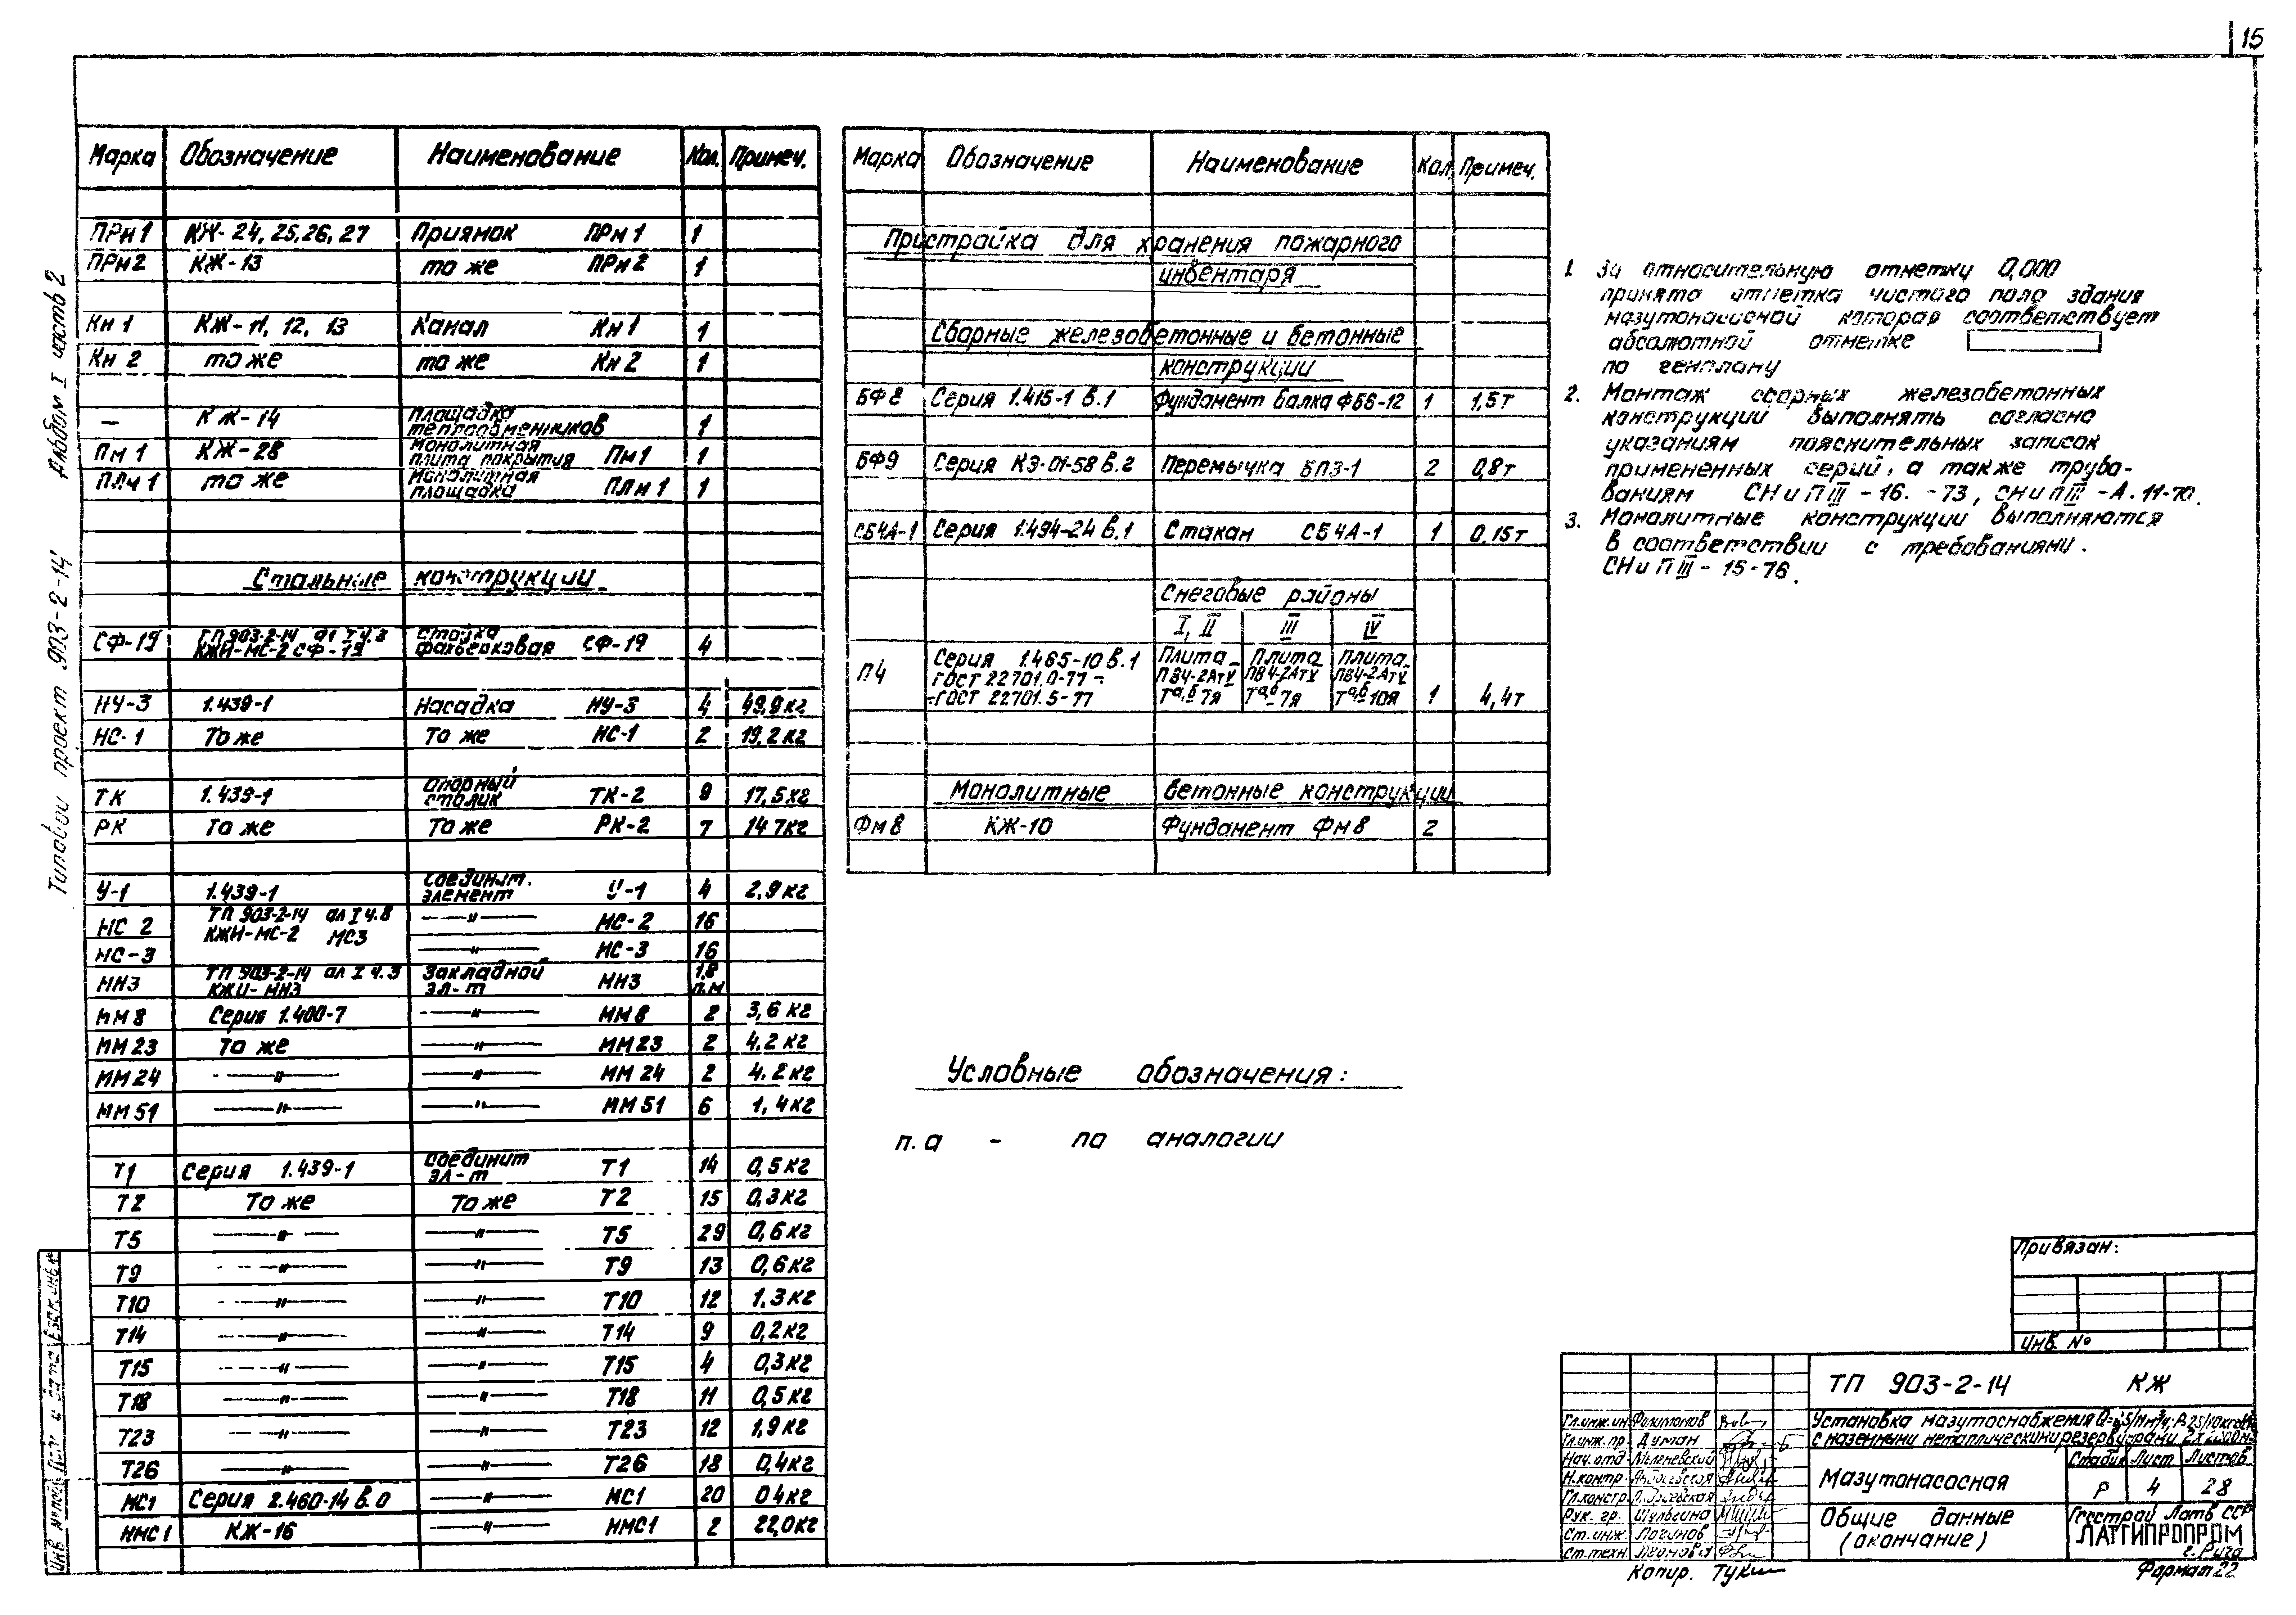 15
Альбом I часть 2
Типовой проект 903-2-14
Марка Обозначение Наименование Кол. Примеч.
ПРм1 КЖ-24,25,26,27 Приямок ПРм1 1
ПРм2 КЖ-13 то же ПРм2 1
Кн1 КЖ-11, 12, 13 Канал Кн1 1
Кн2 то же то же Кн2 1
— КЖ-14 площадка теплообменников 1
Пм1 КЖ-28 Монолитная плита покрытия Пм1 1
ПЛм1 то же Монолитная площадка ПЛм1 1
Стальные конструкции
СФ-19 ТП 903-2-14 ал I ч.8 КЖИ-МС-2 СФ-19 стойка фахверковая СФ-19 4
НУ-3 1.439-1 Насадка НУ-3 4 49,9кг
НС-1 То же То же НС-1 2 19,2кг
ТК 1.439-1 опорный столик ТК-2 9 17,5кг
РК То же То же РК-2 7 14 7кг
У-1 1.439-1 соединит. элемент У-1 4 2,9кг
МС 2 ТП 903-2-14 ал I ч.8 —"— МС-2 16
КЖИ-МС-2 МС3
МС-3 —"— МС-3 16
МН3 ТП 903-2-14 ал I ч.3 КЖИ-МН3 Закладной эл-т МН3 1,8 п.м
ММ8 Серия 1.400-7 —"— ММ8 2 3,6 кг
ММ23 То же —"— ММ23 2 4,2 кг
ММ24 —"— —"— ММ24 2 4.2кг
ММ51 —"— —"— ММ51 6 1,4кг
Т1 Серия 1.439-1 Соединит эл-т Т1 14 0,5кг
Т2 То же То же Т2 15 0,3кг
Т5 —"— —"— Т5 29 0,6кг
Т9 —"— —"— Т9 13 0,6кг
Т10 —"— —"— Т10 12 1,3кг
Т14 —"— —"— Т14 9 0,2кг
Т15 —"— —"— Т15 4 0,3кг
Т18 —"— —"— Т18 11 0,5кг
Т23 —"— —"— Т23 12 1,9кг
Т26 —"— —"— Т26 18 0,4кг
МС1 Серия 2.460-14 в.0 —"— МС1 20 04кг
НМС1 КЖ-16 —"— НМС1 2 22,0кг
Марка Обозначение Наименование Кол. Примеч.
Пристройка для хранения пожарного
инвентаря
Сборные железобетонные и бетонные
конструкции
БФ8 Серия 1.415-1 в.1 Фундамент балка ФБ6-12 1 1,5т
БФ9 Серия КЭ-01-58 в.2 Перемычка БП3-1 2 0,8т
СБ4А-1 Серия 1.494-24 в.1 Стакан СБ4А-1 1 0,15т
Снеговые районы
I, II III IV
П4 Серия 1.465-10 в.1 ГОСТ 22701.0-77 - -ГОСТ 22701.5-77 Плита ПВ4-2АтV Та,б-7я Плита ПВ4-2АтV Та,б-7я Плита ПВ4-2АтV Та,б-10я 1 4,4т
Монолитные бетонные конструкции
Фм8 КЖ-10 Фундамент Фм8 2
Условные обозначения:
п.а - по аналогии
1. За относительную отметку 0,000
принята отметка чистого пола здания
мазутонасосной которая соответствует
абсолютной отметке
по генплану
2. Монтаж сборных железобетонных
конструкций выполнять согласно
указаниям пояснительных записок
примененных серий, а также требо-
ваниям СНиП III-16.-73, СНиП III-А.11-70.
3. Монолитные конструкции выполняются
в соответствии с требованиями.
СНиП III-15-76.
Привязан:
Инв. №
ТП 903-2-14 КЖ
Установка мазутоснабжения
с наземными металлическими резервуарами
Мазутонасосная
Стадия Лист Листов
Р 4 28
Общие данные
(окончание)
Госстрой Латв ССР
ЛАТГИПРОПРОМ
г. Рига
Гл.инж.ин. Филимонов
Гл.инж.пр. Думан
Нач.отд.
Н.контр.
Гл.констр.
Рук. гр. Шульгина
Ст.инж. Логинов
Ст.техн. Леонова
Копир.
Формат 22